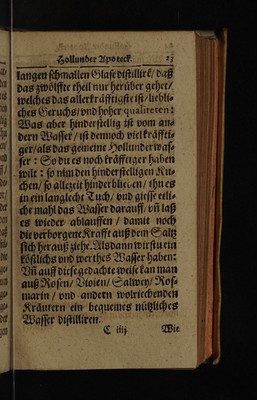 Hollunder Apoteck. 23
langen schmallen Glase distillirē/ daß
das zwölffte theil nur herüber gehet/
welches das allerkräfftigste ist/ liebli-
ches Geruchs/ vnd hoher qualiteten:
Was aber hinderstellig ist vom an-
dern Wasser/ ist dennoch viel kräffti-
ger/ als das gemeine Hollunderwas-
ser: So du es noch kräfftiger haben
wilt: so nim den hinderstelligen Ku-
chen/ so allezeit hinderblieben/ thu es
in ein langlecht Tuch/ vnd giesse etli-
che mahl das Wasser darauff/ vñ laß
es wieder ablauffen/ damit noch
die verborgene Krafft auß dem Saltz
sich herauß ziehe. Alsdann wirstu ein
köstlichs vnd werthes Wasser haben:
Vñ auff diese gedachte weise kan man
auß Rosen/ Violen/ Salwey/ Ros-
marin/ vnd andern wolriechenden
Kräutern ein bequemes nützliches
Wasser distilliren.
C iiij Wie